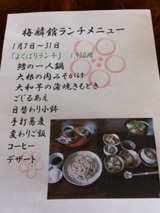 梅麟舘ランチメニュー
1月7日〜31日
「よくばりランチ」 1,950円
鱈の一人鍋
大根の肉みそがけ
大和芋の蒲焼きもどき
ごじるあえ
日替わり小鉢
手打蕎麦
変わりご飯
コーヒー
デザート